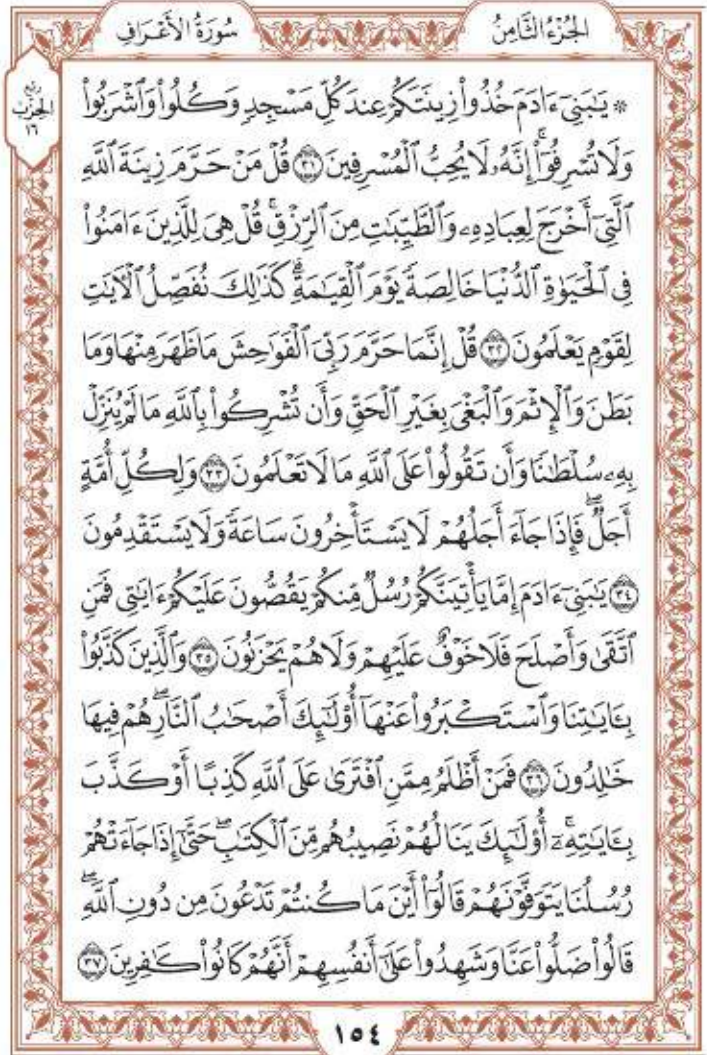 الجُزْءُ الثَّامِنُ
سُورَةُ الأَعْرَافِ
ربع
الحزب
١٦
۞ يَٰبَنِيٓ ءَادَمَ خُذُواْ زِينَتَكُمۡ عِندَ كُلِّ مَسۡجِدٖ وَكُلُواْ وَٱشۡرَبُواْ
وَلَا تُسۡرِفُوٓاْۚ إِنَّهُۥ لَا يُحِبُّ ٱلۡمُسۡرِفِينَ ٣١ قُلۡ مَنۡ حَرَّمَ زِينَةَ ٱللَّهِ
ٱلَّتِيٓ أَخۡرَجَ لِعِبَادِهِۦ وَٱلطَّيِّبَٰتِ مِنَ ٱلرِّزۡقِۚ قُلۡ هِيَ لِلَّذِينَ ءَامَنُواْ
فِي ٱلۡحَيَوٰةِ ٱلدُّنۡيَا خَالِصَةٗ يَوۡمَ ٱلۡقِيَٰمَةِۗ كَذَٰلِكَ نُفَصِّلُ ٱلۡأٓيَٰتِ
لِقَوۡمٖ يَعۡلَمُونَ ٣٢ قُلۡ إِنَّمَا حَرَّمَ رَبِّيَ ٱلۡفَوَٰحِشَ مَا ظَهَرَ مِنۡهَا وَمَا
بَطَنَ وَٱلۡإِثۡمَ وَٱلۡبَغۡيَ بِغَيۡرِ ٱلۡحَقِّ وَأَن تُشۡرِكُواْ بِٱللَّهِ مَا لَمۡ يُنَزِّلۡ
بِهِۦ سُلۡطَٰنٗا وَأَن تَقُولُواْ عَلَى ٱللَّهِ مَا لَا تَعۡلَمُونَ ٣٣ وَلِكُلِّ أُمَّةٍ
أَجَلٞۖ فَإِذَا جَآءَ أَجَلُهُمۡ لَا يَسۡتَأۡخِرُونَ سَاعَةٗ وَلَا يَسۡتَقۡدِمُونَ
٣٤ يَٰبَنِيٓ ءَادَمَ إِمَّا يَأۡتِيَنَّكُمۡ رُسُلٞ مِّنكُمۡ يَقُصُّونَ عَلَيۡكُمۡ ءَايَٰتِي فَمَنِ
ٱتَّقَىٰ وَأَصۡلَحَ فَلَا خَوۡفٌ عَلَيۡهِمۡ وَلَا هُمۡ يَحۡزَنُونَ ٣٥ وَٱلَّذِينَ كَذَّبُواْ
بِـَٔايَٰتِنَا وَٱسۡتَكۡبَرُواْ عَنۡهَآ أُوْلَٰٓئِكَ أَصۡحَٰبُ ٱلنَّارِۖ هُمۡ فِيهَا
خَٰلِدُونَ ٣٦ فَمَنۡ أَظۡلَمُ مِمَّنِ ٱفۡتَرَىٰ عَلَى ٱللَّهِ كَذِبًا أَوۡ كَذَّبَ
بِـَٔايَٰتِهِۦٓۚ أُوْلَٰٓئِكَ يَنَالُهُمۡ نَصِيبُهُم مِّنَ ٱلۡكِتَٰبِۖ حَتَّىٰٓ إِذَا جَآءَتۡهُمۡ
رُسُلُنَا يَتَوَفَّوۡنَهُمۡ قَالُوٓاْ أَيۡنَ مَا كُنتُمۡ تَدۡعُونَ مِن دُونِ ٱللَّهِۖ
قَالُواْ ضَلُّواْ عَنَّا وَشَهِدُواْ عَلَىٰٓ أَنفُسِهِمۡ أَنَّهُمۡ كَانُواْ كَٰفِرِينَ ٣٧
١٥٤